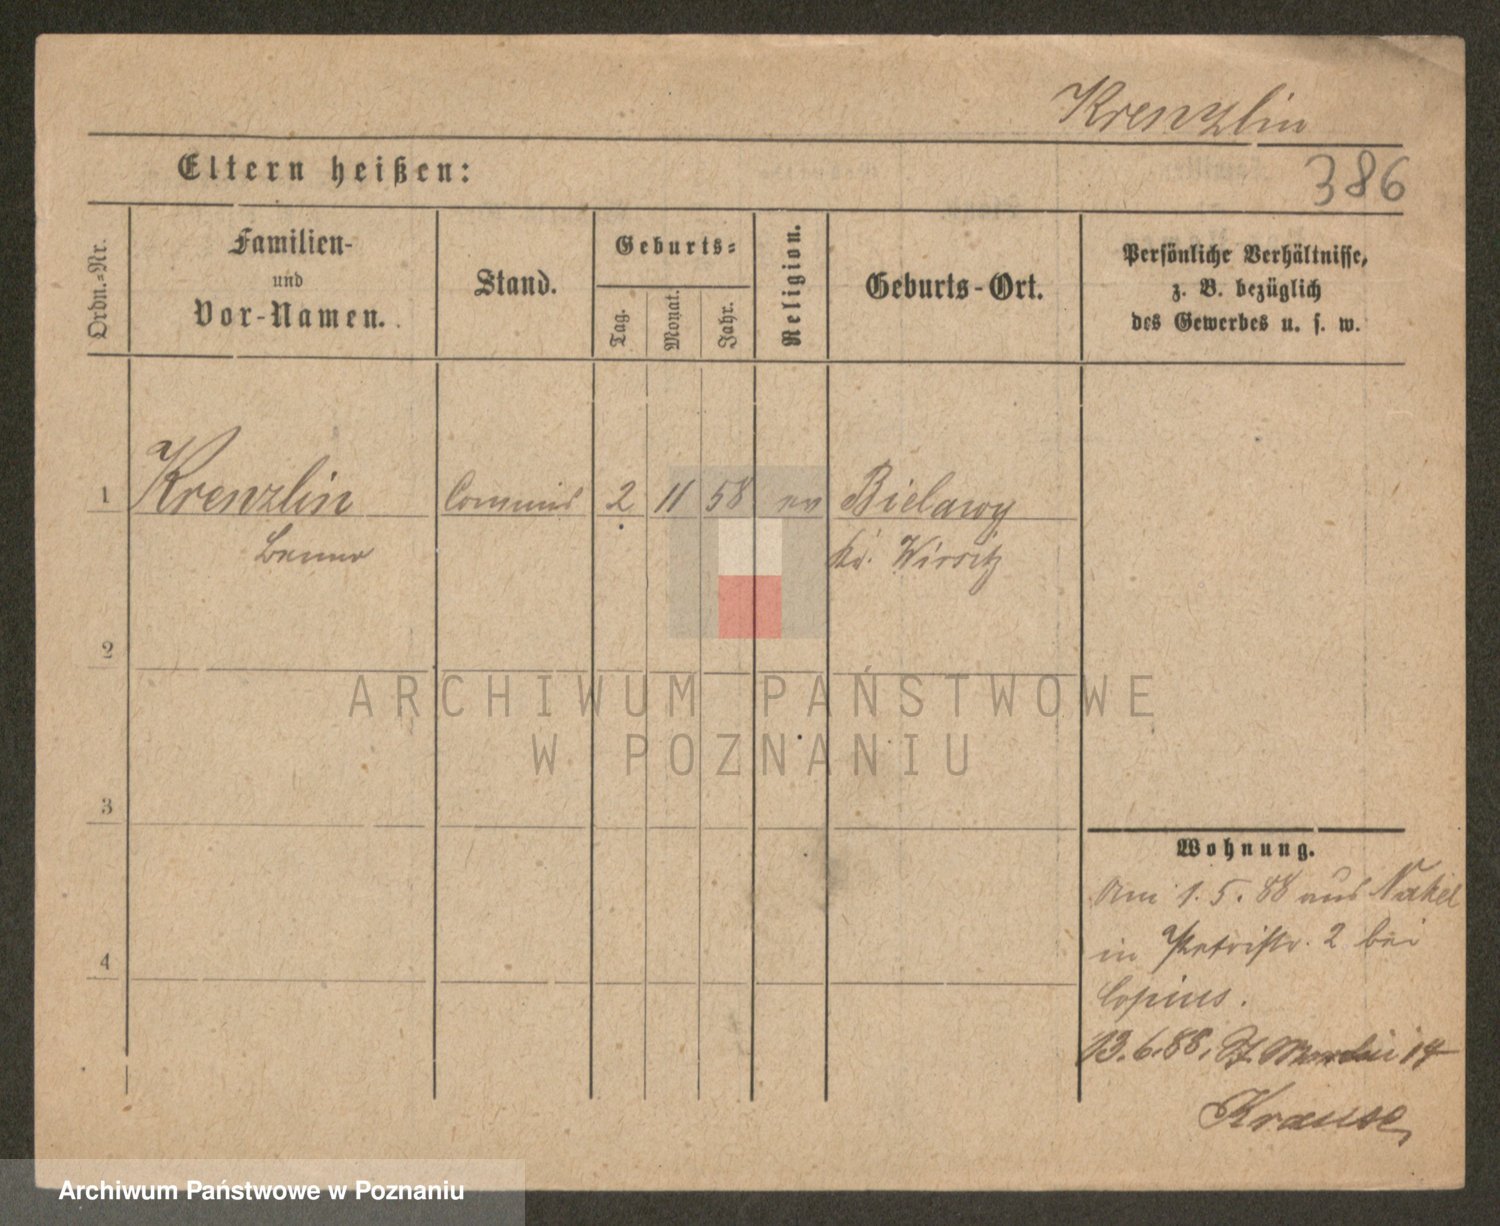 Krenzlin
Eltern heißen:
386
Ordn.-Nr.
Familien-
und
Vor-Namen.
Stand.
Geburts-
Tag.
Monat.
Jahr.
Religion.
Geburts-Ort.
Persönliche Verhältnisse,
z. B. bezüglich
des Gewerbes u. s. w.
1 Krenzlin Commis 2 11 58 ev Bielawy
Benno Kr. Wirsitz
2
ARCHIWUM PAŃSTWOWE
W POZNANIU
3
Wohnung.
Am 1.5.88 aus Nakel
in Petristr. 2 bei
Copius.
4
13.6.88. St Martin 14
Krause
Archiwum Państwowe w Poznaniu